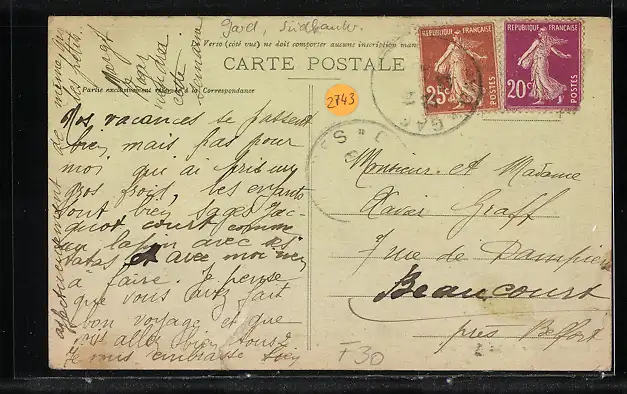 Gard, Südfrankr.
Le Verso (côté vu) ne doit comporter aucune inscription
CARTE POSTALE
Partie exclusivement réservée à la Correspondance
2743
RÉPUBLIQUE FRANÇAISE
25c
POSTES
RÉPUBLIQUE FRANÇAISE
20c
POSTES
Nos vacances se passent
bien, mais pas pour
moi, qui ai pris un
gros froid, les enfants
sont bien sages Jac-
quot court comme
un lapin avec ses
tatas et avec moi
à faire. Je pense
que vous avez fait
bon voyage et que
vous allez bien tous 2
Je vous embrasse bien
affectueusement de même que
les petits.
Monsieur et Madame
Xavier Graff
7 rue de Dampierre
Beaucourt
près Belfort
F30